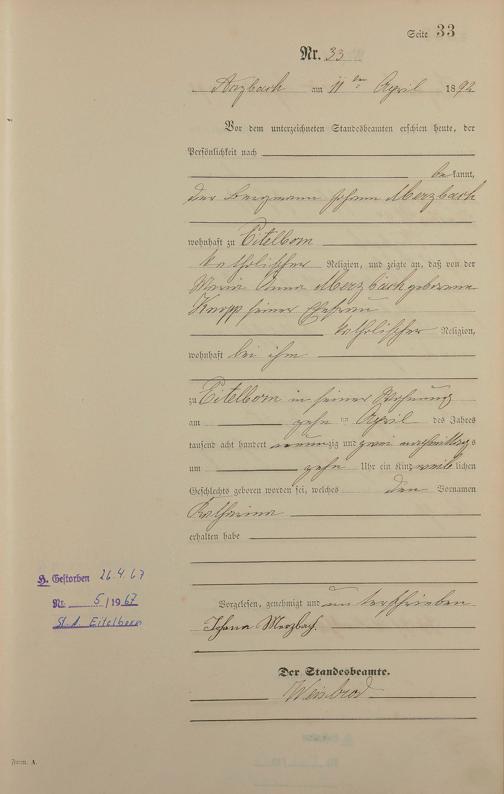 Seite 33
Nr. 33
Arzbach am 11 ten April 1892
Vor dem unterzeichneten Standesbeamten erschien heute, der
Persönlichkeit nach
bekannt,
der Bergmann Johann Merzbach
wohnhaft zu Eitelborn
katholischer Religion, und zeigte an, daß von der
Maria Anna Merzbach geborene
Knopp seiner Ehefrau
katholischer Religion,
wohnhaft bei ihm
zu Eitelborn in seiner Wohnung
am zehn ten April des Jahres
tausend acht hundert neunzig und zwei nachmittags
um zehn Uhr ein Kind weiblichen
Geschlechts geboren worden sei, welches den Vornamen
Katharina
erhalten habe
H. Gestorben 26.4.67
Nr. 5/1967
St. A. Eitelborn
Vorgelesen, genehmigt und unterschrieben
Johann Merzbach.
Der Standesbeamte.
Weinbrod
Form. A.